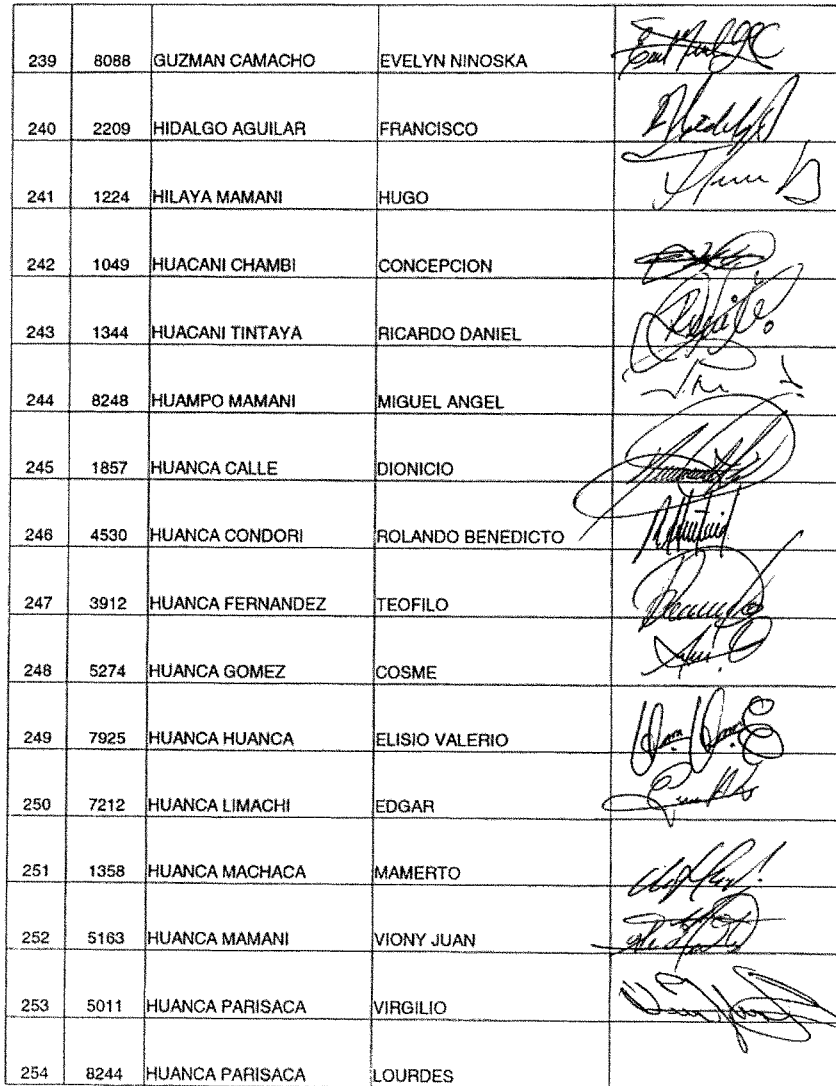 239 8088 GUZMAN CAMACHO EVELYN NINOSKA
240 2209 HIDALGO AGUILAR FRANCISCO
241 1224 HILAYA MAMANI HUGO
242 1049 HUACANI CHAMBI CONCEPCION
243 1344 HUACANI TINTAYA RICARDO DANIEL
244 8248 HUAMPO MAMANI MIGUEL ANGEL
245 1857 HUANCA CALLE DIONICIO
246 4530 HUANCA CONDORI ROLANDO BENEDICTO
247 3912 HUANCA FERNANDEZ TEOFILO
248 5274 HUANCA GOMEZ COSME
249 7925 HUANCA HUANCA ELISIO VALERIO
250 7212 HUANCA LIMACHI EDGAR
251 1358 HUANCA MACHACA MAMERTO
252 5163 HUANCA MAMANI VIONY JUAN
253 5011 HUANCA PARISACA VIRGILIO
254 8244 HUANCA PARISACA LOURDES